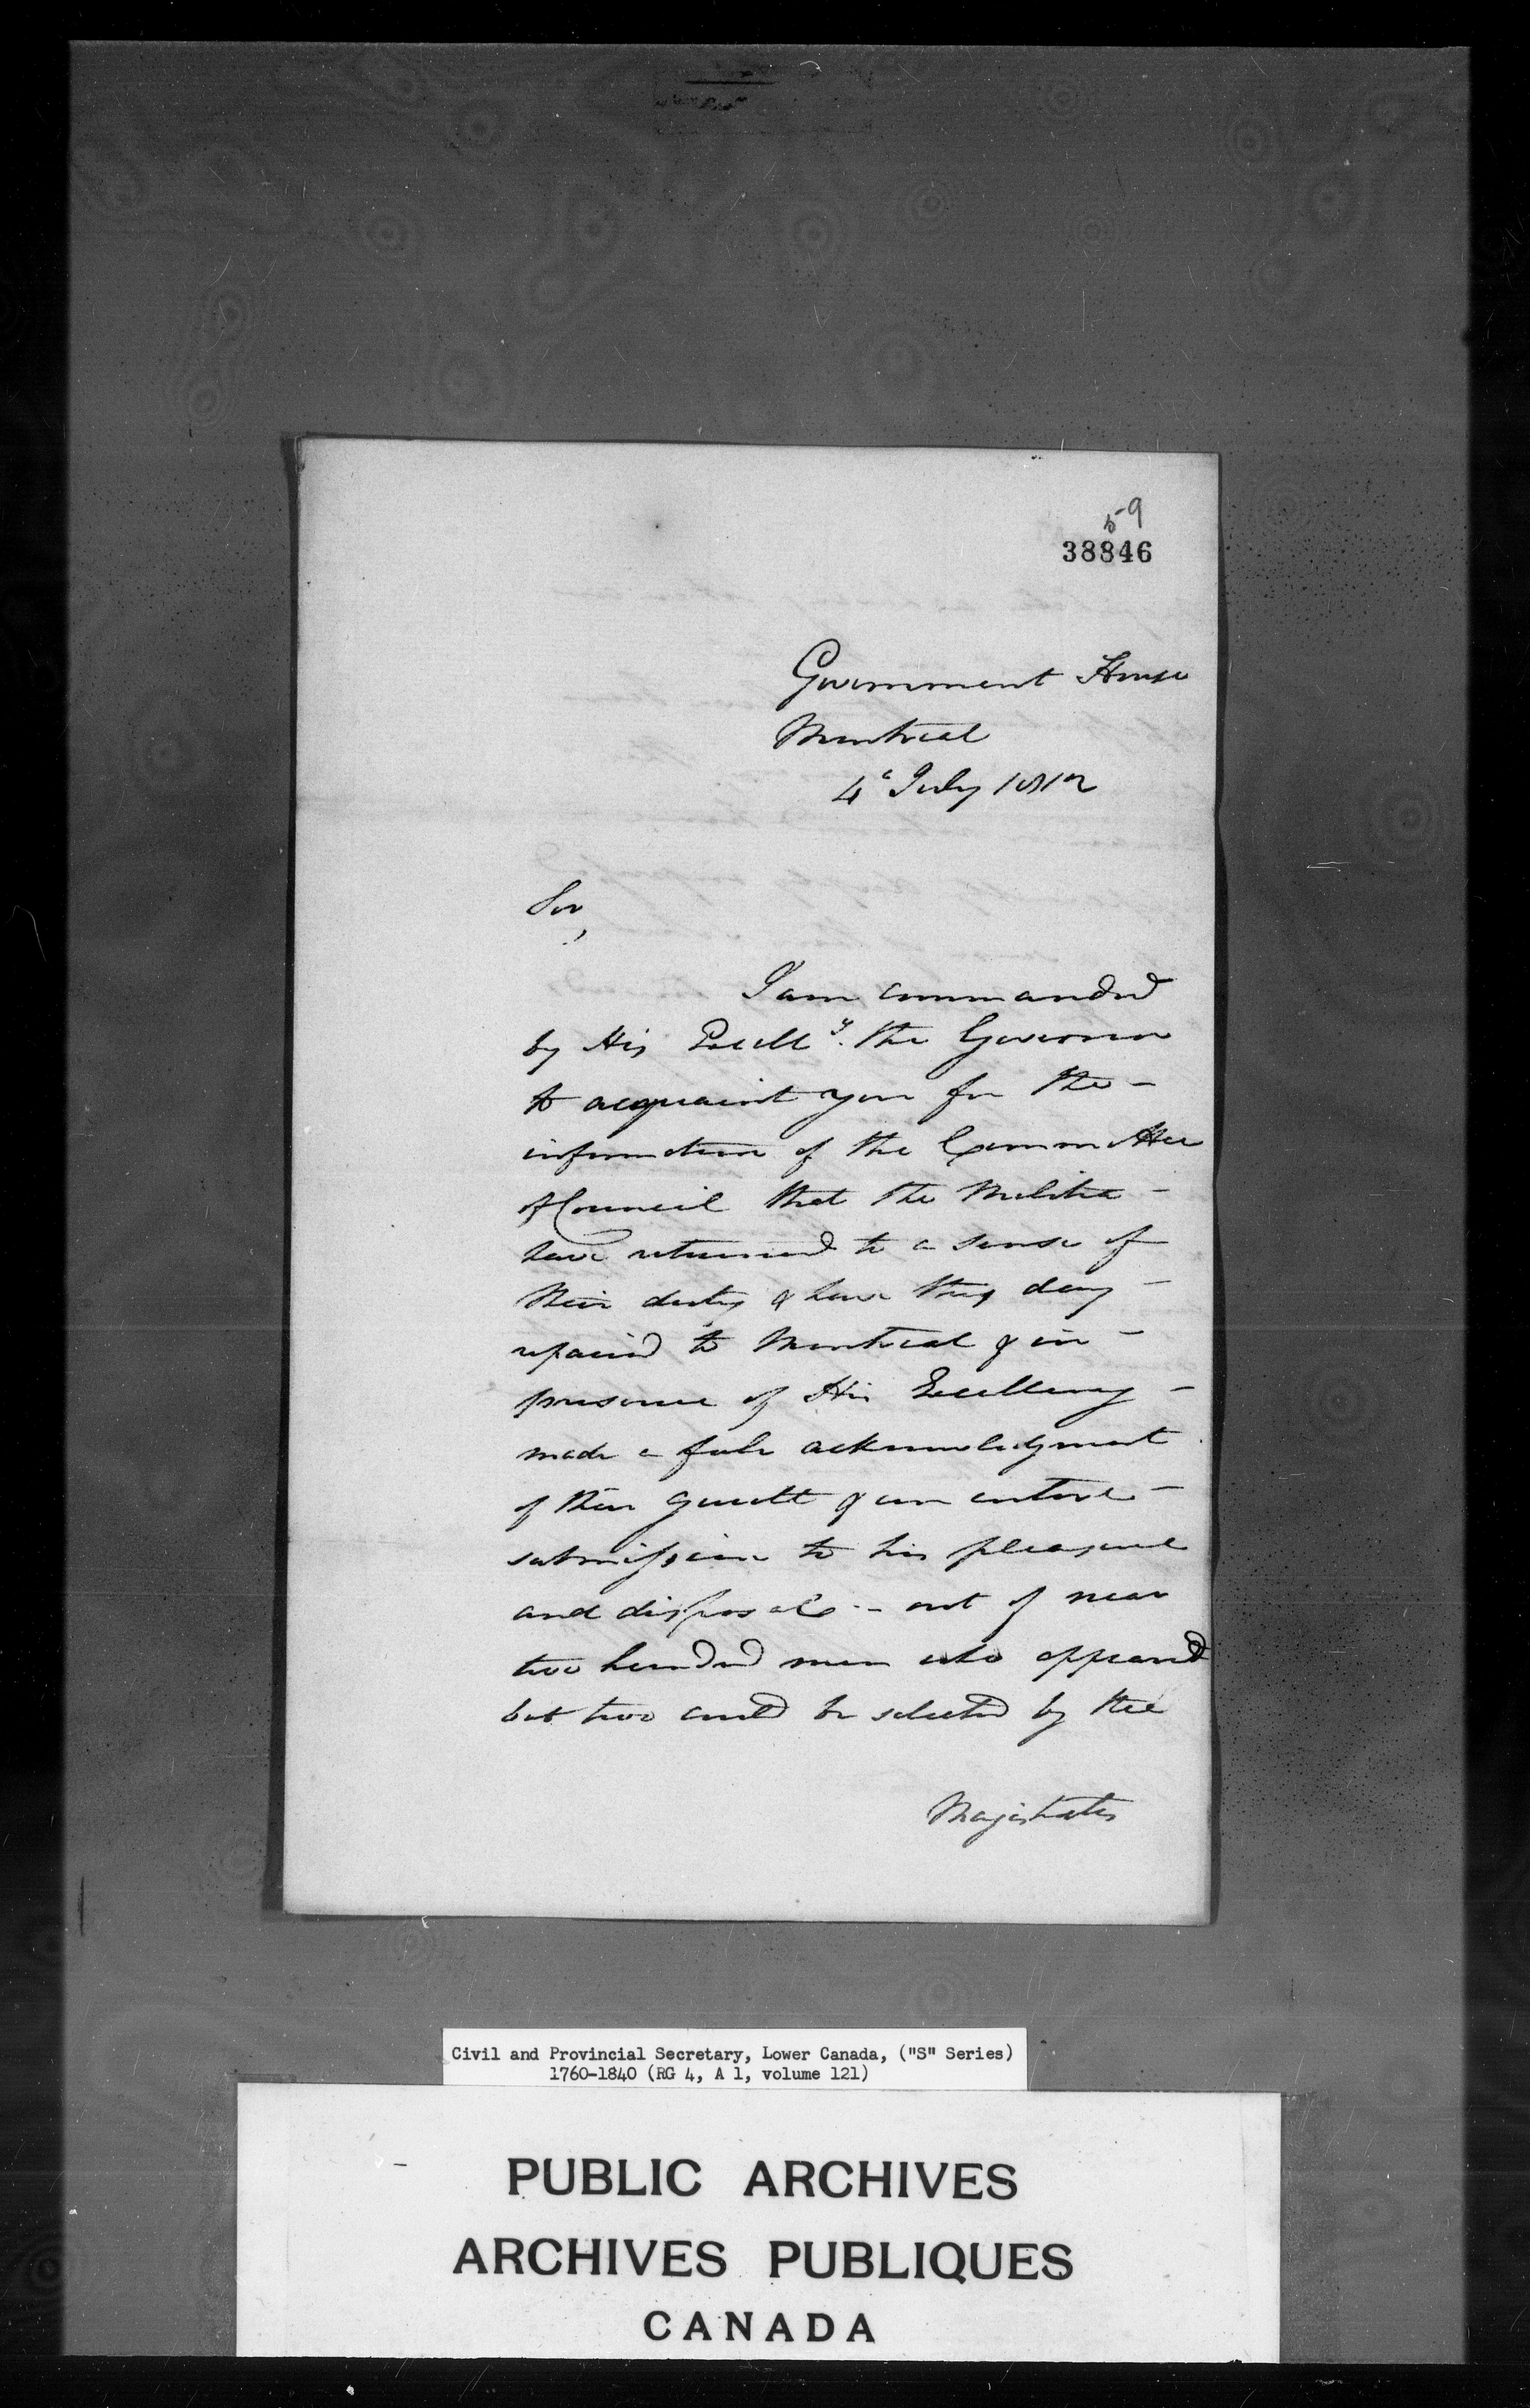 59
38846
Government House
Montreal
4th July 1812
Sir,
I am commanded
by His Excell^y. the Governor
to acquaint you for the -
information of the Committee
of Council that the Militia -
have returned to a sense of
their duty & have this day -
repaired to Montreal & in -
presence of His Excellency -
made a full acknowledgment
of their guilt & an entire -
submission to his pleasure
and disposal - out of near
two hundred men who appeared
but two could be selected by the
Magistrates
Civil and Provincial Secretary, Lower Canada, ("S" Series)
1760-1840 (RG 4, A 1, volume 121)
PUBLIC ARCHIVES
ARCHIVES PUBLIQUES
CANADA